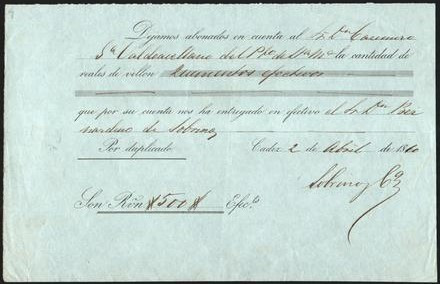 Dejamos abonados en cuenta al Sr. Dn. Casimiro
Sa. Valdeavellano del Pto. de Sta. Ma. la cantidad de
reales de vellon Quinientos efectivos
que por su cuenta nos ha entregado en efectivo el Sr. Dn. Ber
nardino de Sobrino
Por duplicado Cadiz 2 de Abril de 1860
Sobrino y Ca.
Son Rvn. $500$ Efvos.